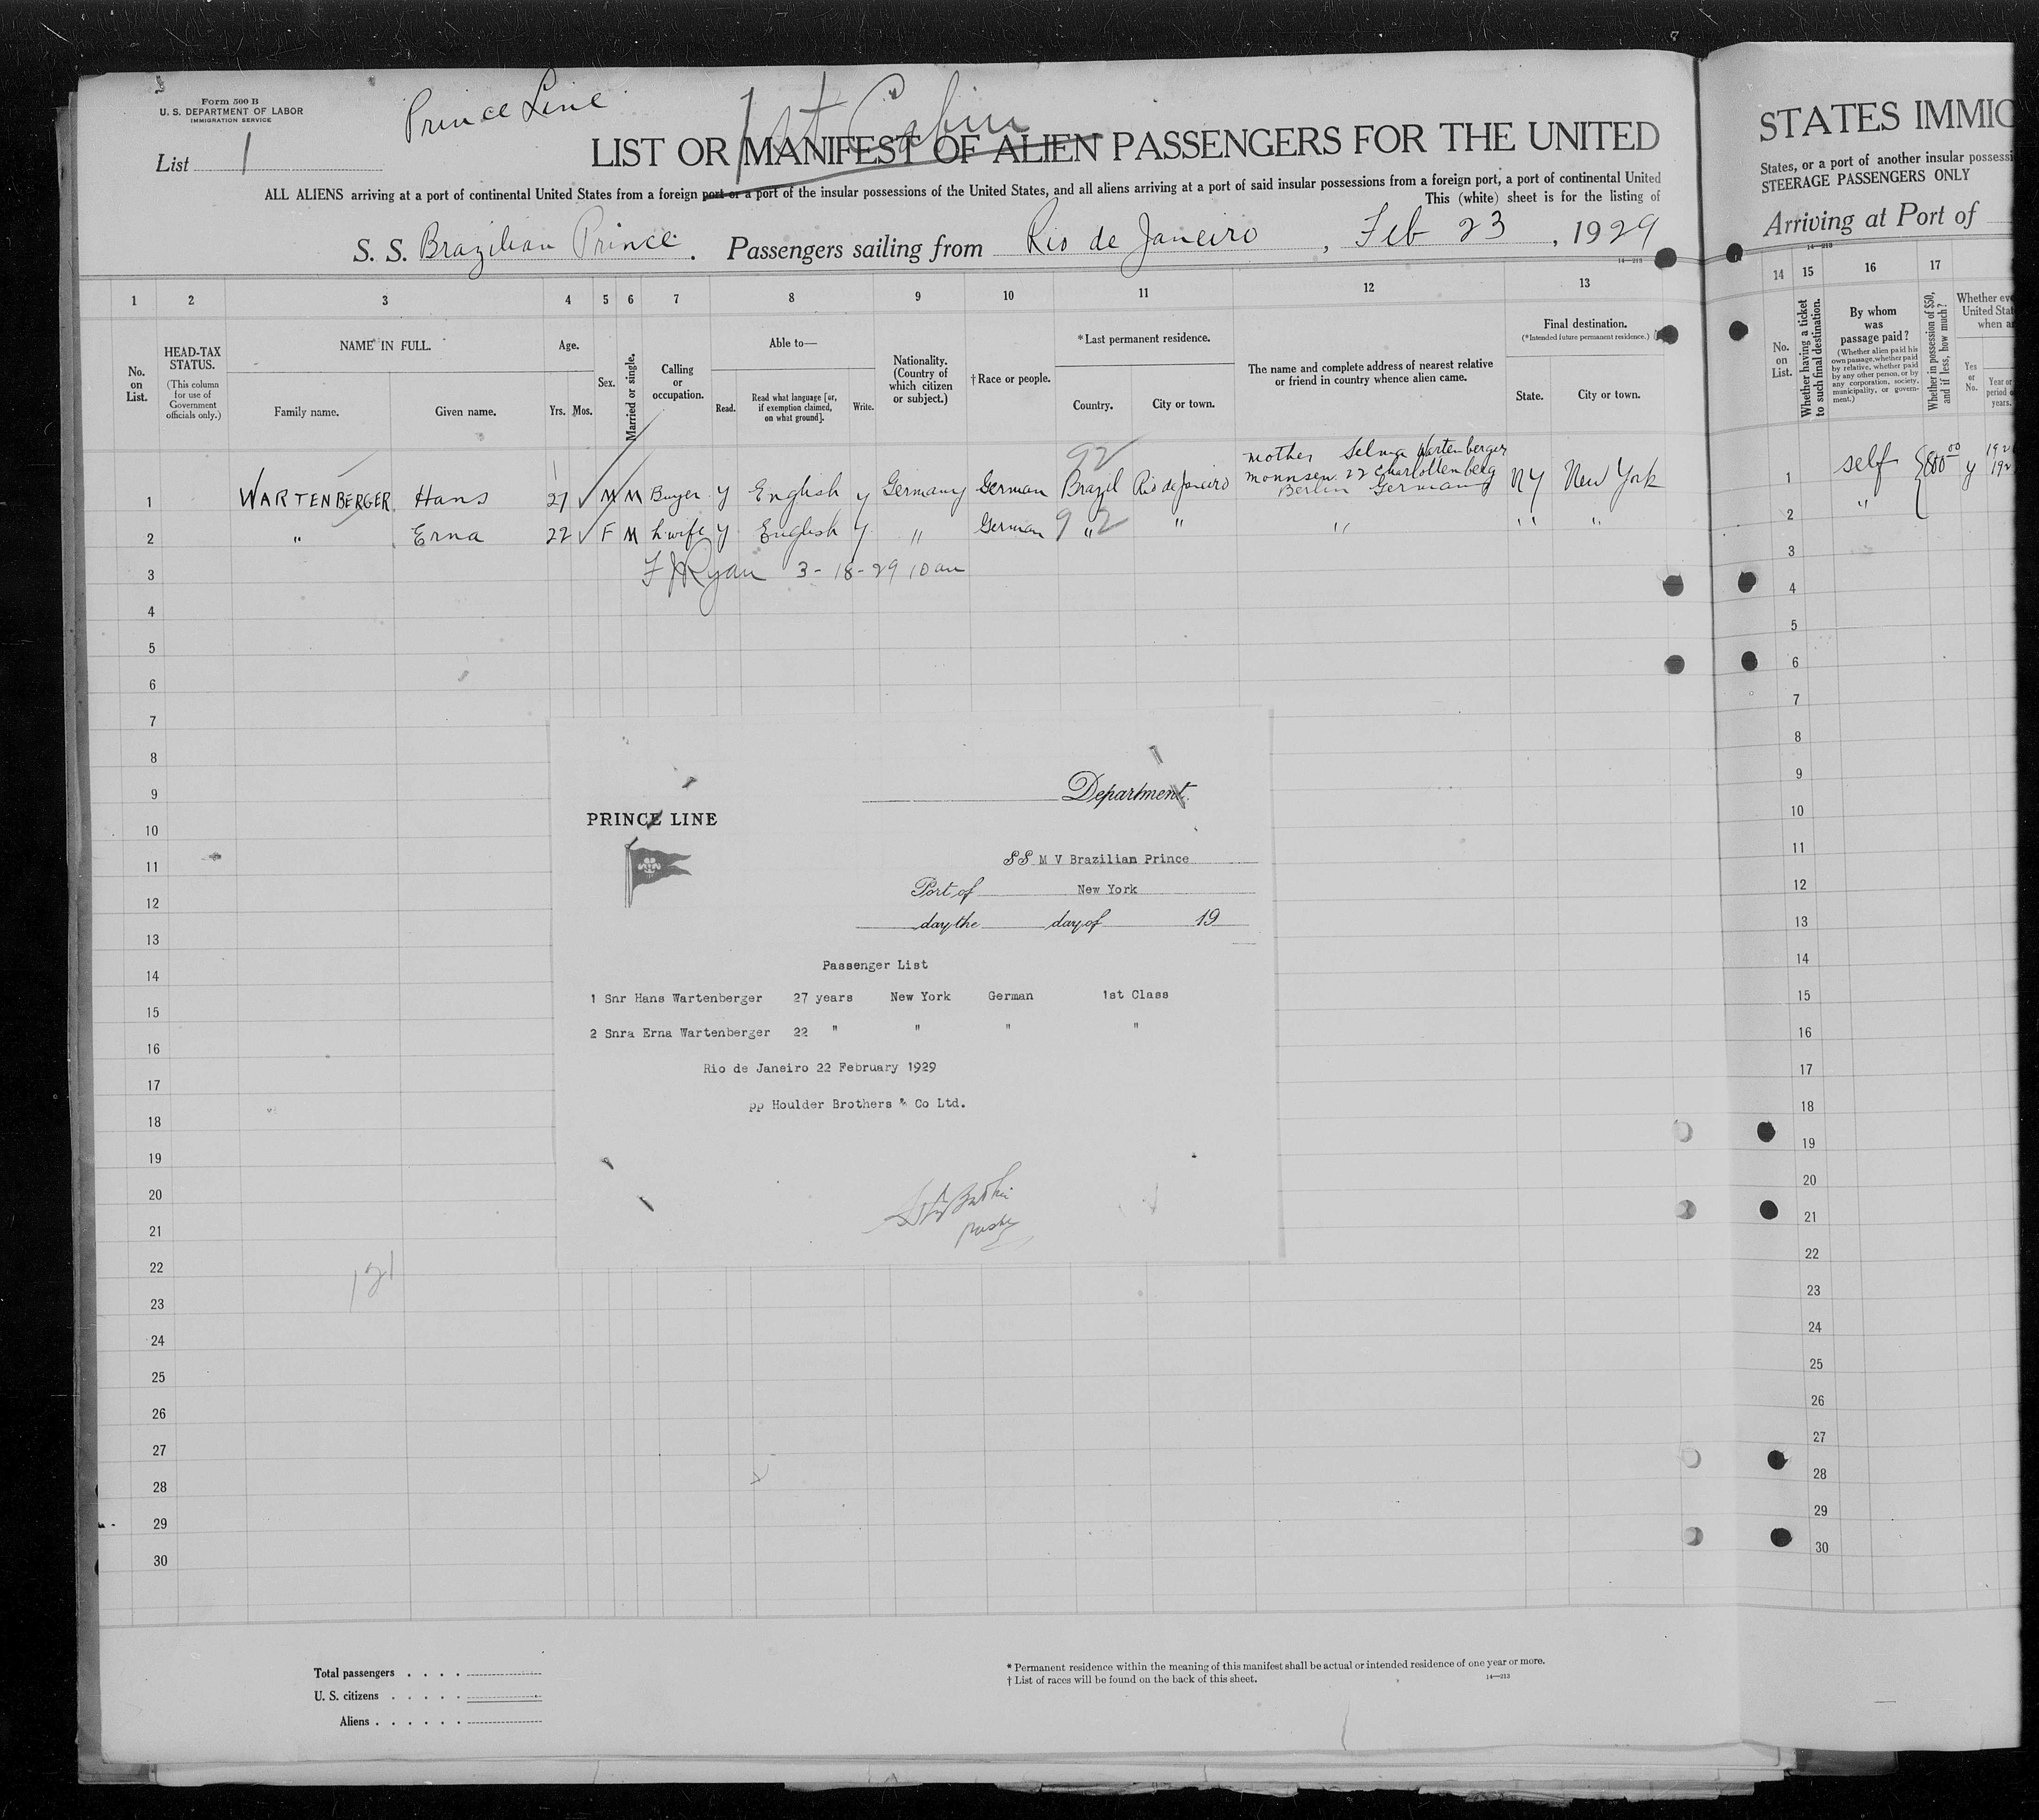 Form 500 B
U. S. DEPARTMENT OF LABOR
IMMIGRATION SERVICE
Prince Line
1st Cabin
List 1
LIST OR MANIFEST OF ALIEN PASSENGERS FOR THE UNITED
ALL ALIENS arriving at a port of continental United States from a foreign port or a port of the insular possessions of the United States, and all aliens arriving at a port of said insular possessions from a foreign port, a port of continental United
This (white) sheet is for the listing of
S. S. Brazilian Prince. Passengers sailing from Rio de Janeiro, Feb 23, 1929
14—213
1 2 3 4 5 6 7 8 9 10 11 12 13
No. on List.
HEAD-TAX STATUS.
(This column for use of Government officials only.)
NAME IN FULL.
Family name. Given name.
Age.
Yrs. Mos.
Sex.
Married or single.
Calling or occupation.
Able to—
Read. Read what language [or, if exemption claimed, on what ground]. Write.
Nationality. (Country of which citizen or subject.)
†Race or people.
*Last permanent residence.
Country. City or town.
The name and complete address of nearest relative or friend in country whence alien came.
Final destination.
(*Intended future permanent residence.)
State. City or town.
92
mother Selma Wartenberger
22 Charlottenberg
Berlin Germany
1 WARTENBERGER Hans 27 M M Buyer y English y Germany German Brazil Rio de Janeiro NY New York
2 " Erna 22 F M h'wife y English y " German 92 " " " " "
3 F J Ryan 3-18-29 10 am
4
5
6
7
8
9
10
11
12
13
14
15
16
17
18
19
20
21
22
23
24
25
26
27
28
29
30
Department
PRINCE LINE
SS M V Brazilian Prince
Port of New York
day the day of 19
Passenger List
1 Snr Hans Wartenberger 27 years New York German 1st Class
2 Snra Erna Wartenberger 22 " " " "
Rio de Janeiro 22 February 1929
pp Houlder Brothers & Co Ltd.
121
Total passengers . . . .
U. S. citizens . . . . .
Aliens . . . . . .
* Permanent residence within the meaning of this manifest shall be actual or intended residence of one year or more.
† List of races will be found on the back of this sheet.
14—213
STATES IMMIG
States, or a port of another insular possessi
STEERAGE PASSENGERS ONLY
Arriving at Port of
14—213
14 15 16 17
No. on List.
Whether having a ticket to such final destination.
By whom was passage paid?
(Whether alien paid his own passage, whether paid by relative, whether paid by any other person, or by any corporation, society, municipality, or government.)
Whether in possession of $50, and if less, how much?
Whether eve
United Stat
when a
Yes or No.
Year or period o years.
1 self y
2 "
3
4
5
6
7
8
9
10
11
12
13
14
15
16
17
18
19
20
21
22
23
24
25
26
27
28
29
30